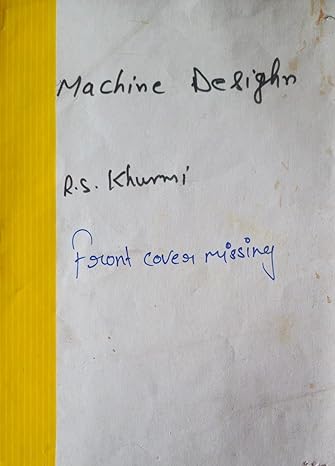 Machine Desighn
R.S. Khurmi
Front cover missing